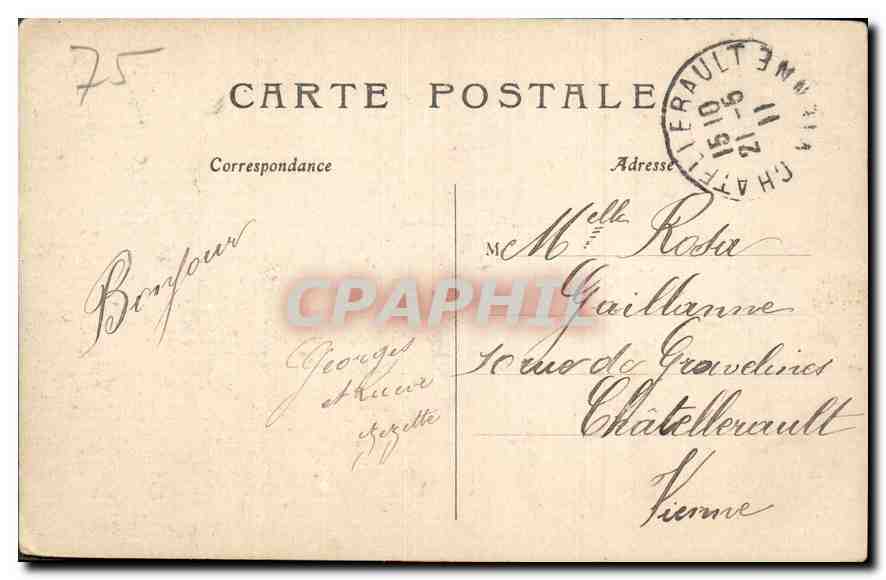 75
CARTE POSTALE
Correspondance
Adresse
CHATELLERAULT VIENNE
15 10
21 -6
11
Bonjour
Georges
Zezette
M Melle Rosa
Gaillanne
10 rue de Gravelines
Châtellerault
Vienne
CPAPHIL